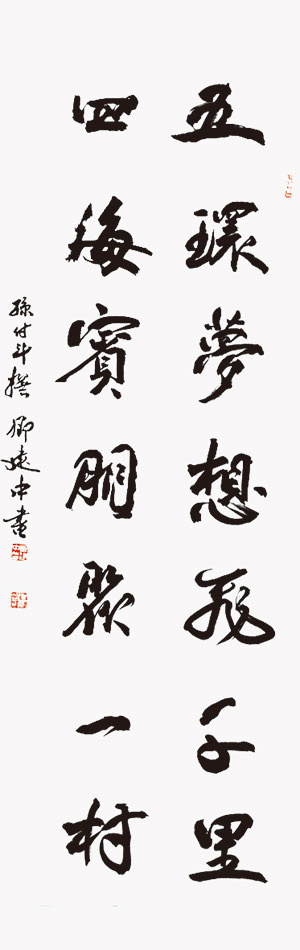 五環夢想飛千里
四海賓朋聚一村
孫付斗撰 卿建中書